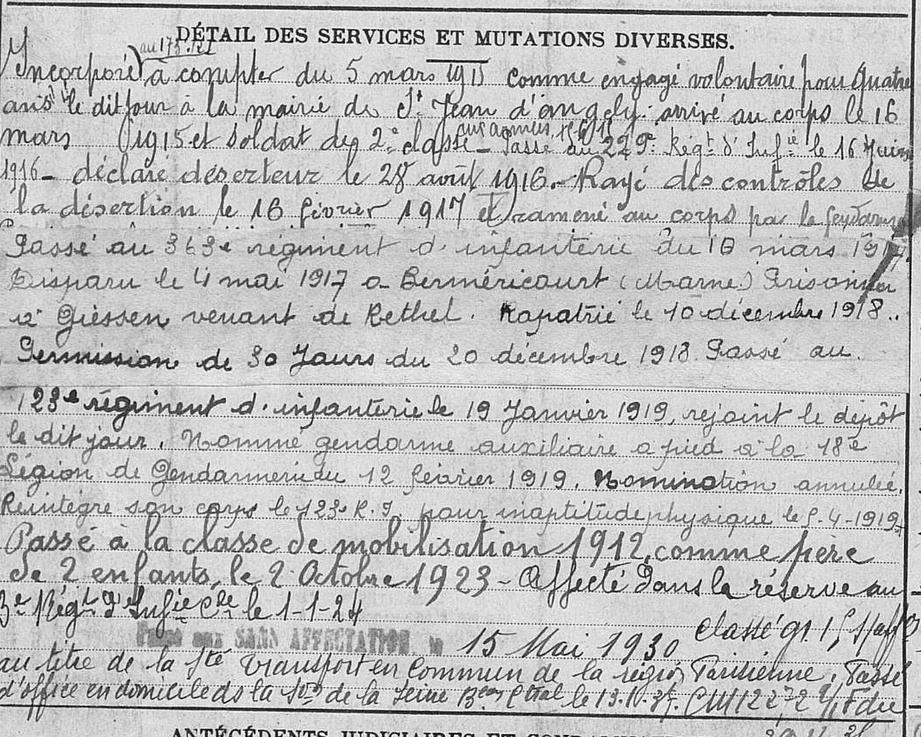 DÉTAIL DES SERVICES ET MUTATIONS DIVERSES.
au 173e RI
Incorporé à compter du 5 mars 1915 comme engagé volontaire pour quatre
ans le dit jour à la mairie de St Jean d'angely. arrivé au corps le 16
mars 1915 et soldat de 2e classe – Passé au 229e Regt d'Infie le 16 Juin
aux armées
1916 – déclaré déserteur le 28 août 1916. – Rayé des contrôles de
la désertion le 16 février 1917 et ramené au corps par la gendarm
Passé au 363e régiment d'infanterie du 18 mars 1917.
Disparu le 4 mai 1917 a Berméricourt (Marne) Prisonnier
à Giessen venant de Rethel. Rapatrié le 10 décembre 1918.
Permission de 30 Jours du 20 décembre 1918 Passé au
123e régiment d'infanterie le 19 Janvier 1919, rejoint le dépôt
le dit jour. Nommé gendarme auxiliaire a pied à la 18e
Légion de Gendarmerie du 12 février 1919. Nomination annulée.
Réintègre son corps le 123e R.I. pour inaptitude physique le 5-4-1919
Passé à la classe de mobilisation 1912, comme père
de 2 enfants, le 2 Octobre 1923 – Affecté dans la réserve au
3e Régt d'Infie Cle le 1-1-24
Classé
SANS AFFECTATION le 15 Mai 1930
au titre de la Sté Transport en Commun de la région Parisienne. Passé
d'office en domicile ds la de la Seine Bau Ctral le 13.10.
ANTÉCÉDENTS JUDICIAIRES ET